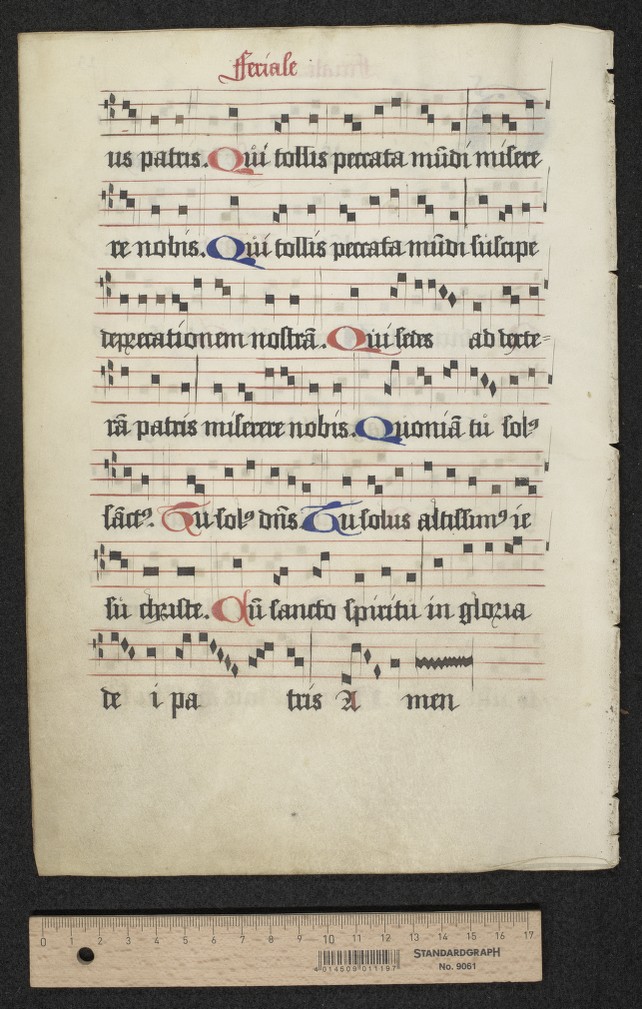 Feriale
us patris. Qui tollis peccata mūdi misere
re nobis. Qui tollis peccata mūdi suscipe
deprecationem nostrā. Qui sedes ad dexte-
rā patris miserere nobis. Quoniā tu solꝰ
sāctꝰ. Tu solꝰ dn̄s Tu solus altissimꝰ ie
su christe. Cū sancto spiritu in gloria
de i pa tris A men
0 1 2 3 4 5 6 7 8 9 10 11 12 13 14 15 16 17
4 014509 011197
STANDARDGRAPH
No. 9061